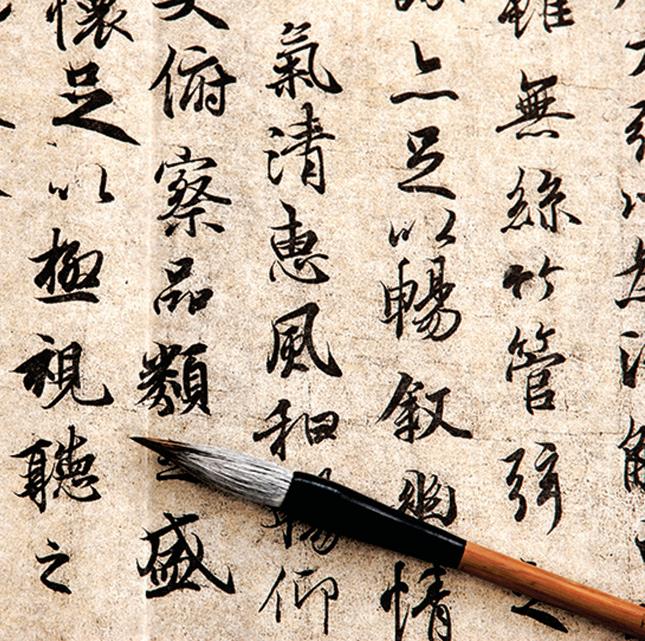 雖無絲竹管弦之
亦足以暢叙幽情
氣清惠風和暢仰
俯察品類之盛
懷足以極視聽之